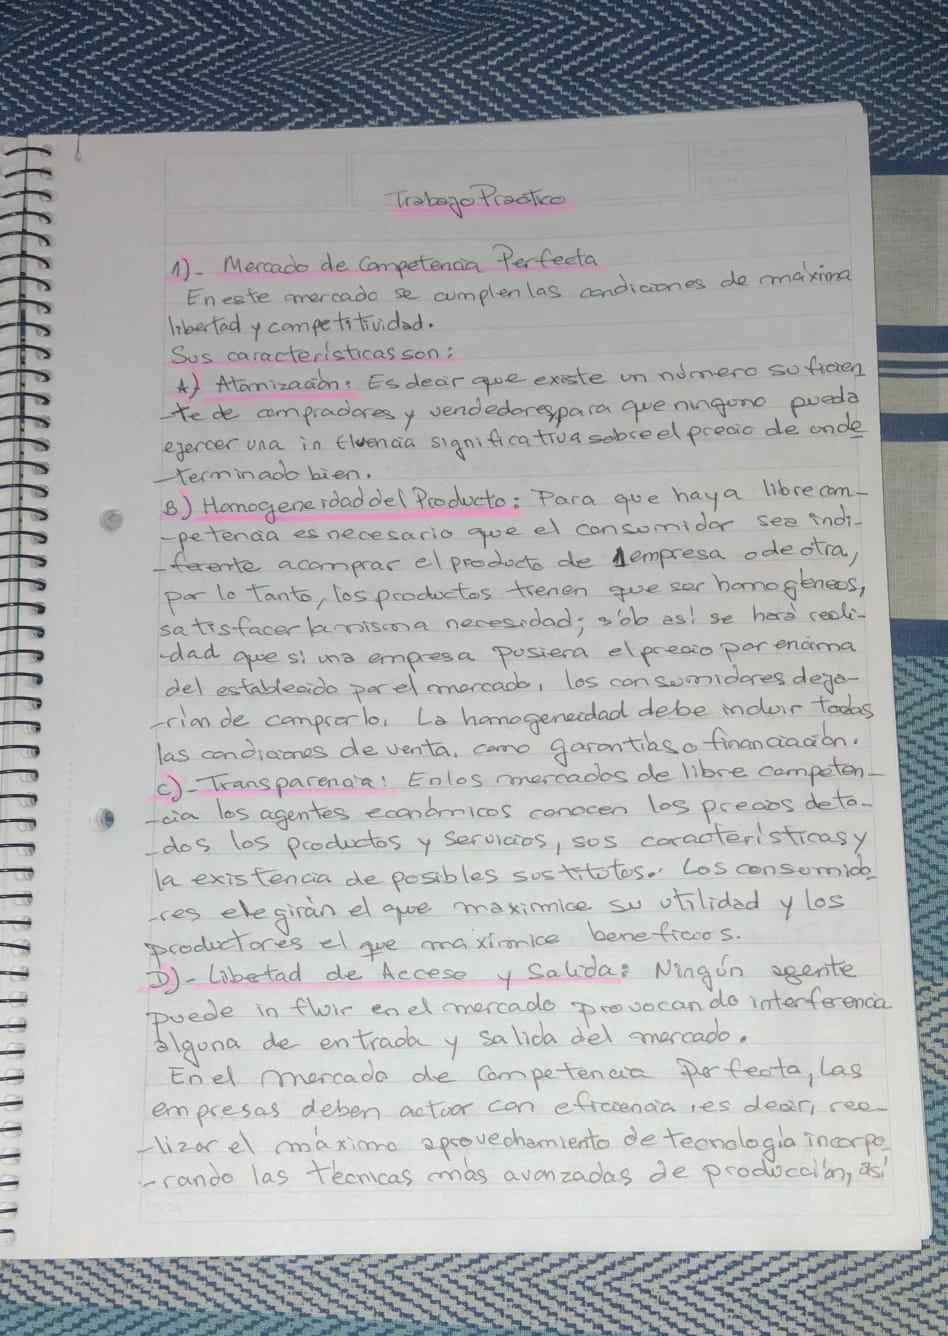 Trabajo Practico
1)- Mercado de Competencia Perfecta
En este mercado se cumplen las condiciones de máxima
libertad y competitividad.
Sus características son:
A) Atomización: Es decir que existe un número suficien
-te de compradores y vendedores, para que ninguno pueda
ejercer una influencia significativa sobre el precio de un de
-terminado bien.
B) Homogeneidad del Producto: Para que haya libre com-
-petencia es necesario que el consumidor sea indi-
-ferente a comprar el producto de 1 empresa o de otra,
por lo tanto, los productos tienen que ser homogéneos,
satisfacer la misma necesidad; sólo así se hará reali-
-dad que si una empresa pusiera el precio por encima
del establecido por el mercado, los consumidores deja-
-rían de comprarlo. La homogeneidad debe incluir todas
las condiciones de venta, como garantías o financiación.
C)- Transparencia: En los mercados de libre competen-
-cia los agentes económicos conocen los precios de to-
-dos los productos y servicios, sus características y
la existencia de posibles sustitutos. Los consumido
-res elegirán el que maximice su utilidad y los
productores el que maximice beneficios.
D)- Libertad de Acceso y Salida: Ningún agente
puede influir en el mercado provocando interferencia
alguna de entrada y salida del mercado.
En el mercado de Competencia Perfecta, las
empresas deben actuar con eficiencia, es decir, rea-
-lizar el máximo aprovechamiento de tecnología incorpo
-rando las técnicas más avanzadas de producción, así